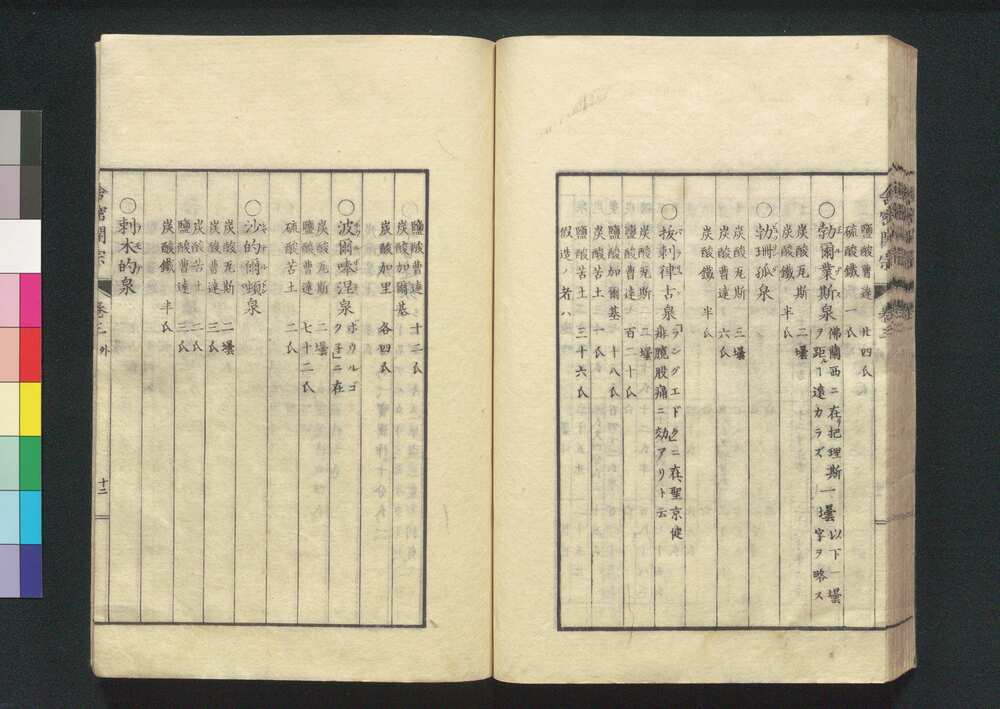 鹽酸曹達 廿四氏
硫酸鐵 一氏
〇勃爾葉斯泉 佛蘭西ニ在把理斯一壜以下一壜
ヲ距ル遠カラズ 字ヲ略ス
炭酸瓦斯 二壜
炭酸鐵 半氏
〇勃珊孤泉
炭酸瓦斯 三壜
炭酸曹達 六氏
炭酸鐵 半氏
律古泉 「ランゲエドク」ニ在
股痛ニ効アリト云
炭酸瓦斯 二壜
鹽酸曹達 百二十氏
鹽酸加爾基 十八氏
鹽酸苦土 三十氏
鹽酸苦土 三十六氏
假造ノ者ハ
舎密開宗 卷三
鹽酸曹達 十二氏
炭酸加爾基
炭酸加里 各四氏
〇波爾嗪涅泉 ボウルゴ
ク子」ニ在
炭酸瓦斯 二壜
鹽酸曹達 七十二氏
硫酸苦土 二氏
〇沙的爾頓泉
炭酸瓦斯 二壜
炭酸曹達 三氏
炭酸苦土 二氏
鹽酸曹達 三氏
炭酸鐵 半氏
〇刺木的泉
舎密開宗 卷三 外 十二